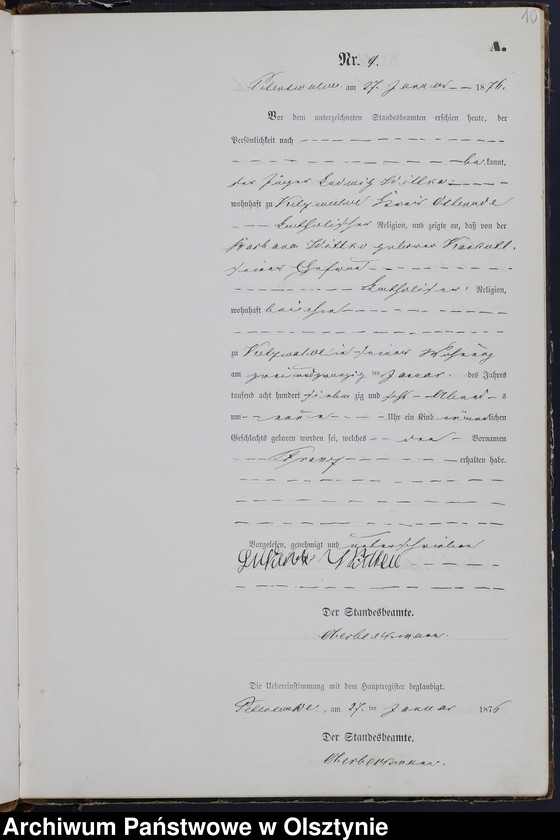 10
A.
Nr. 9.
Peterswalde am 27. Januar 1876.
Vor dem unterzeichneten Standesbeamten erschien heute, der
Persönlichkeit nach
be kannt,
der
wohnhaft zu Kreis Osterode
katholischer Religion, und zeigte an, daß von der
Barbara geborene
seiner Ehefrau
katholischer Religion,
wohnhaft bei ihm
zu in seiner Wohnung
am zwei und zwanzig ten Januar des Jahres
tausend acht hundert sieben zig und sechs Abend s
um neun Uhr ein Kind männ lichen
Geschlechts geboren worden sei, welches den Vornamen
Franz erhalten habe.
Vorgelesen, genehmigt und unterschrieben
Der Standesbeamte.
Die Uebereinstimmung mit dem Hauptregister beglaubigt.
Peterswalde, am 27. ten Januar 1876
Der Standesbeamte.
Archiwum Państwowe w Olsztynie